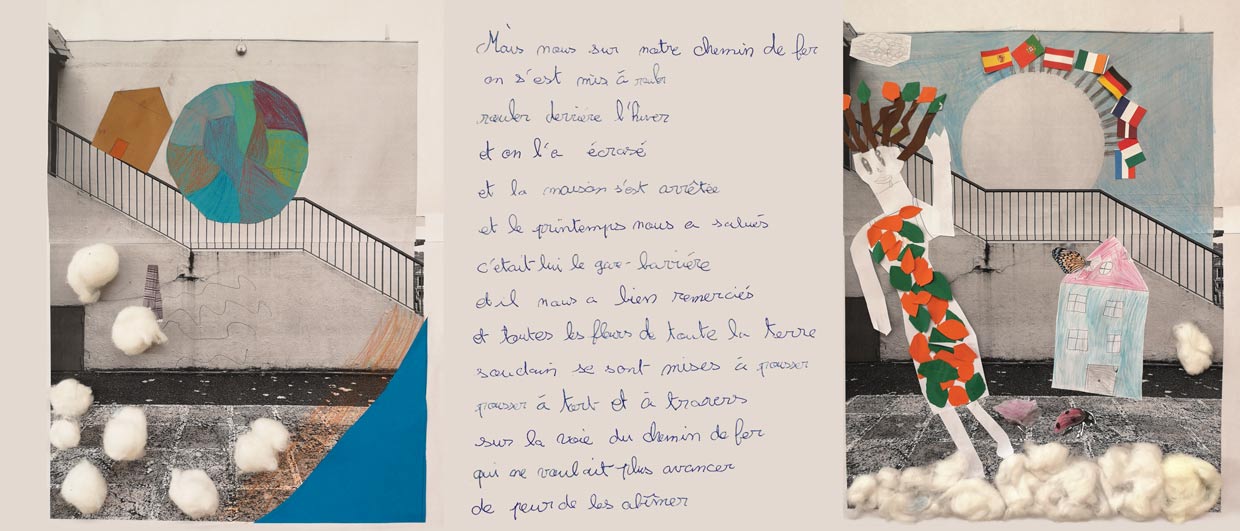 Mais nous sur notre chemin de fer
on s'est mis à rouler
rouler derrière l'hiver
et on l'a écrasé
et la maison s'est arrêtée
et le printemps nous a salués
c'était lui le gar-barrière
et il nous a bien remerciés
et toutes les fleurs de toute la terre
soudain se sont mises à pousser
pousser à tort et à travers
sur la voie du chemin de fer
qui ne voulait plus avancer
de peur de les abîmer